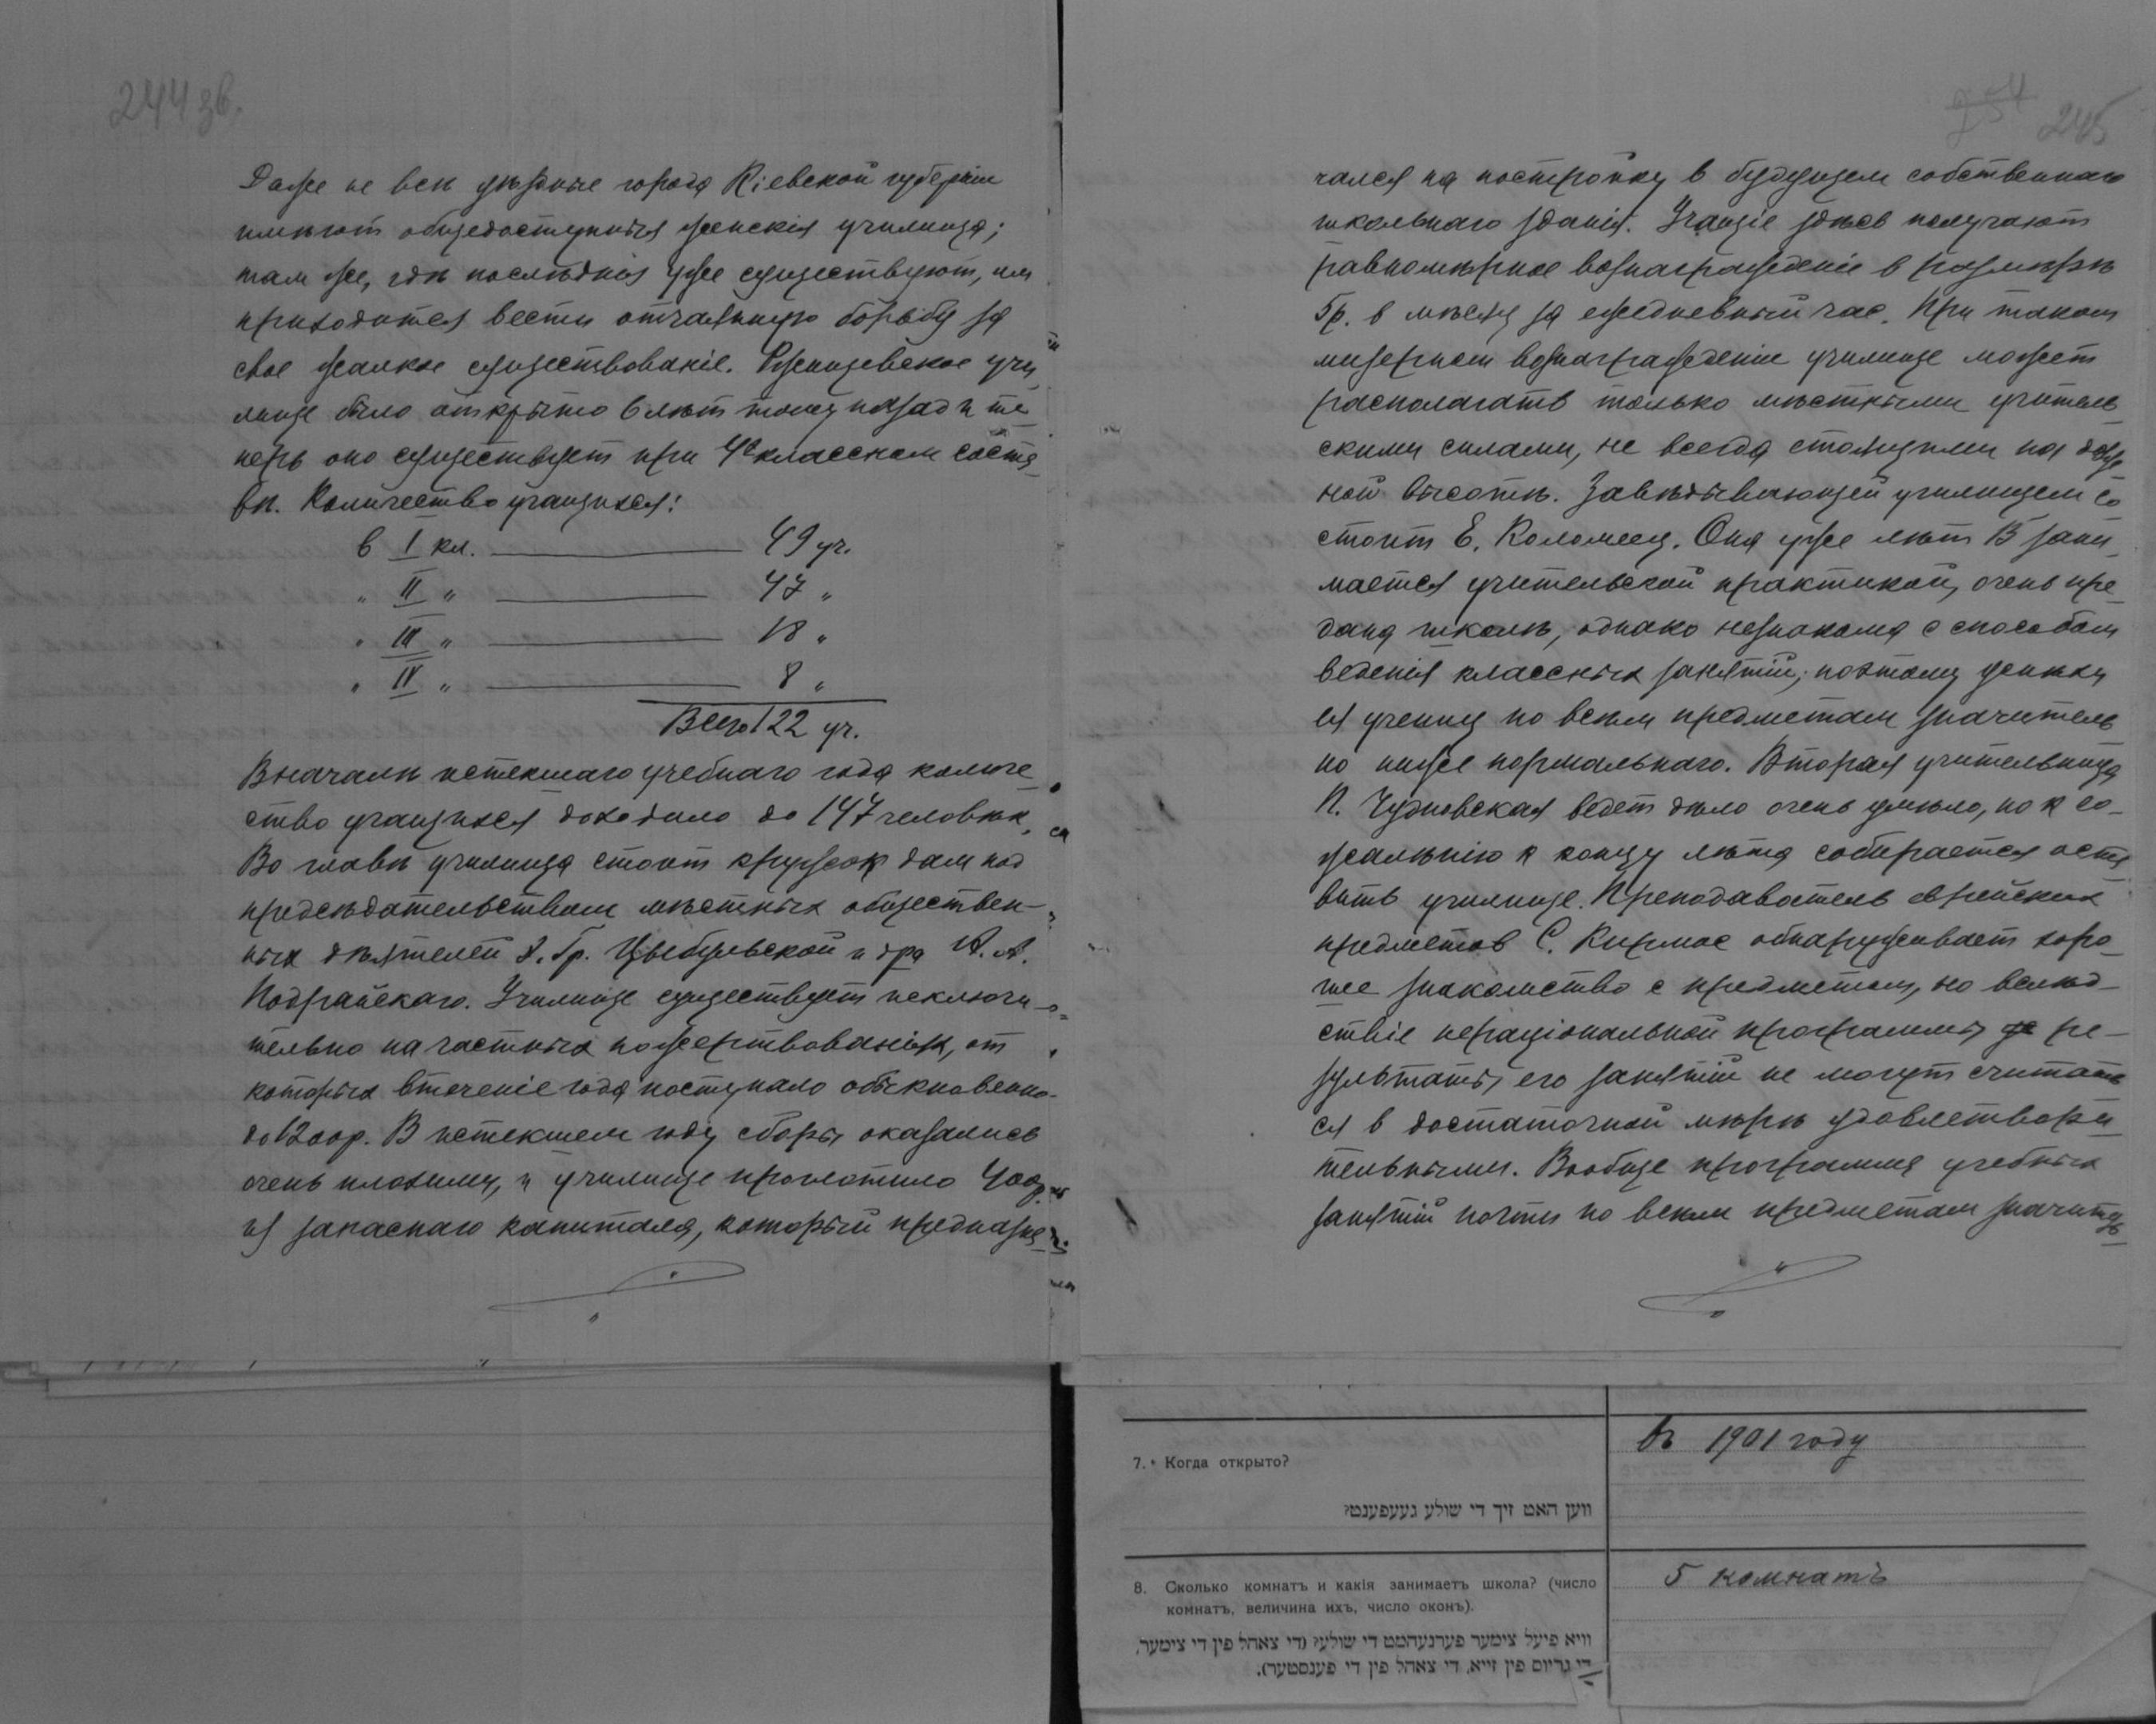 244 зв.
Даже не всѣ уѣздные города Кіевской губерніи
имѣют общедоступныя женскія училища;
там же, гдѣ послѣднія уже существуют, им
приходится вести отчаянную борьбу за
свое жалкое существованіе. Ржищевское учи
лище было открыто 6 лѣт тому назад и те
перь оно существует при 4х классном соста
вѣ. Количество учащихся:
в I кл. 49 уч.
" II " 47 "
" III " 18 "
" IV " 8 "
Всего 122 уч.
Вначалѣ истекшаго учебнаго года количе
ство учащихся доходило до 147 человѣк.
Во главѣ училища стоит кружок дам под
предсѣдательством мѣстных обществен-
ных дѣятелей А. Гр. Цыбульской и дра А. А.
Подрайскаго. Училище существует исключи
тельно на частныя пожертвованія, от
которых втеченіе года поступало обыкновенно
до 1200р. В истекшем году сборы оказались
очень плохими, и училище проглотило 400р.
из запаснаго капитала, который предназна
254 245
чался на постройку в будущем собственнаго
школьнаго зданія. Учащіе здѣсь получают
равномѣрное вознагражденіе в размѣрѣ
5р. в мѣсяц за ежедневный час. При таком
мизерном вознагражденіи училище может
располагать только мѣстными учитель
скими силами, не всегда стоящими на долж
ной высотѣ. Завѣдывающей училищем со
стоит Е. Коломеец. Она уже лѣт 15 зани
мается учительской практикой, очень пре
дана школѣ, однако незнакома с способом
веденія классных занятій; поэтому успѣхи
ея учениц по всѣм предметам значитель
но ниже нормальнаго. Вторая учительница
П. Чудновская ведет дѣло очень умѣло, но к со-
жалѣнію к концу лѣта собирается оста
вить училище. Преподаватель еврейских
предметов С. Кирмас обнаруживает хоро
шее знакомство с предметом, но вслѣд-
ствіе нераціональной программы ре-
зультаты его занятій не могут считать
ся в достаточной мѣрѣ удовлетвори
тельными. Вообще программа учебных
занятій почти по всѣм предметам значитель
7. Когда открыто?
въ 1901 году
ווען האט זיך די שולע געעפענט?
8. Сколько комнатъ и какія занимаетъ школа? (число
комнатъ, величина ихъ, число оконъ).
5 комнатъ
וויא פיעל צימער פערנעהמט די שולע? (די צאהל פין די צימער,
די גרויס פין זייא, די צאהל פין די פענסטער).